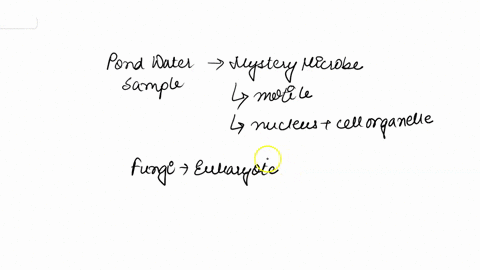 Pond Water → Mystery Microbe
Sample
↳ motile
↳ nucleus + cell organelle
Fungi → Eukaryotic